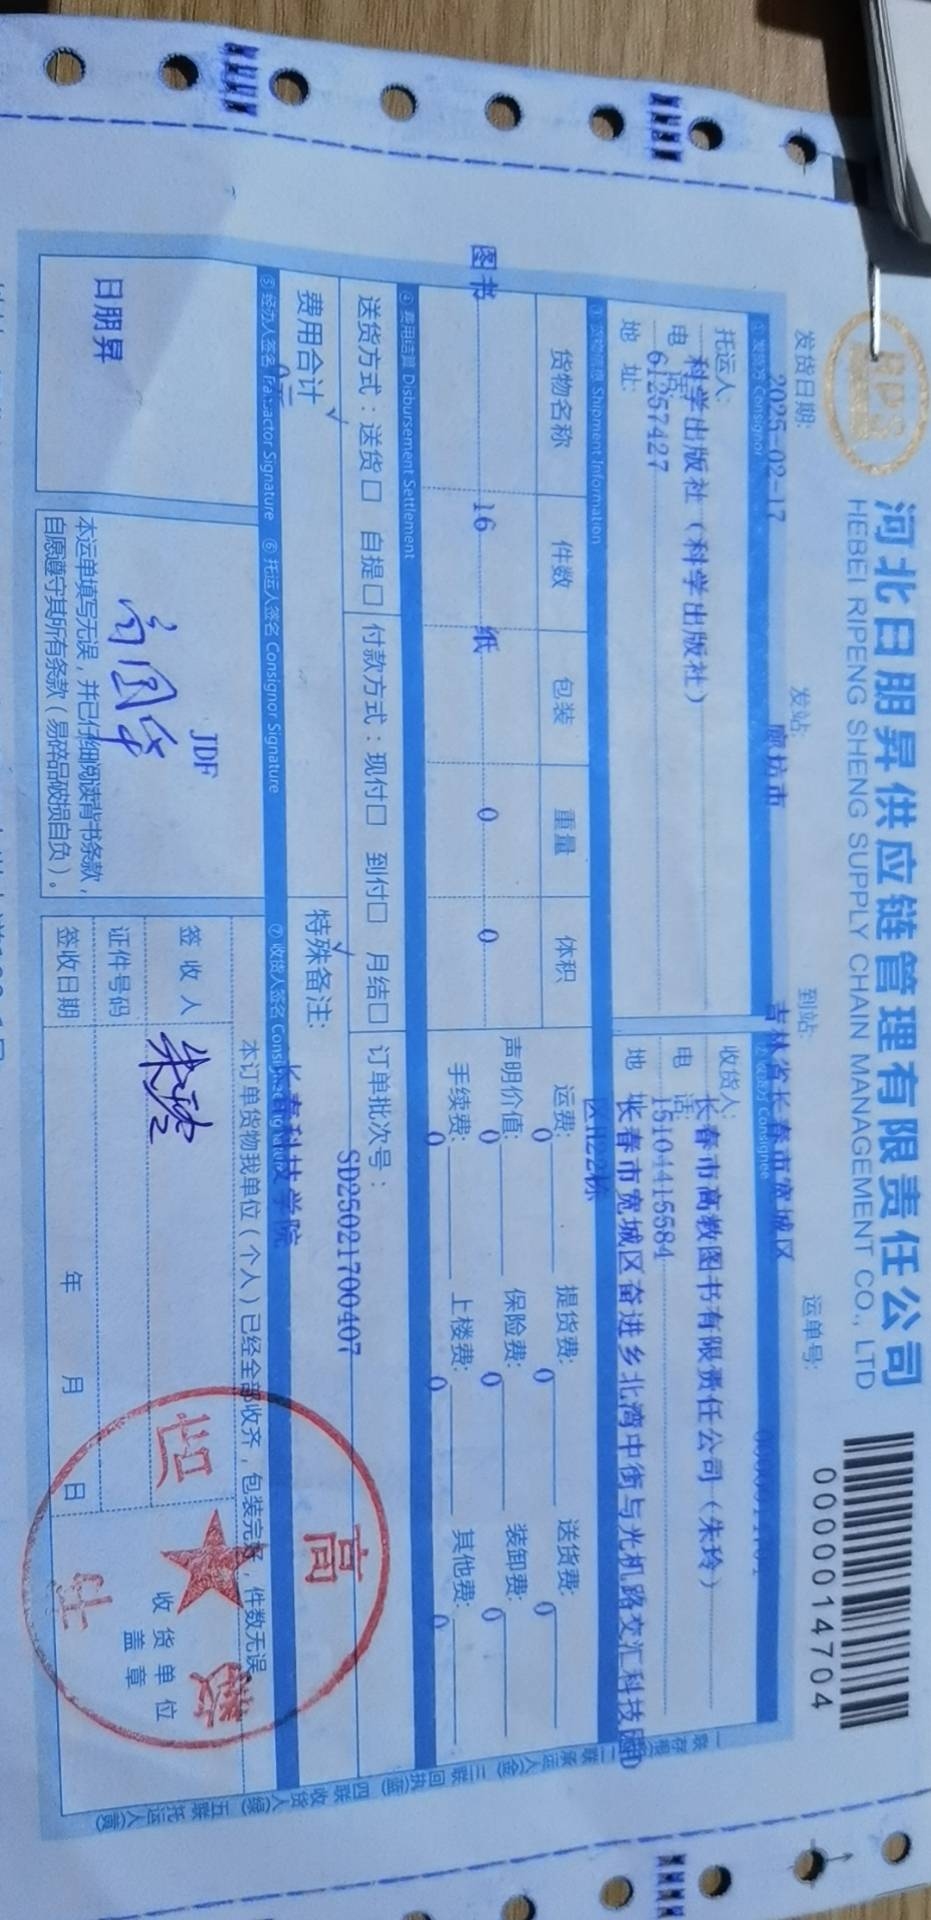 河北日朋昇供应链管理有限责任公司
HEBEI RIPENG SHENG SUPPLY CHAIN MANAGEMENT CO., LTD
0000014704
发货日期:
2025-02-17
发站:
廊坊市
到站:
吉林省长春市宽城区
运单号:
① 发货方 Consignor
Consignee
托运人:
科学出版社（科学出版社）
电话
61257427
地 址:
收货人:
长春市高教图书有限责任公司（朱玲）
电话
15104415584
地
长春市宽城区奋进乡北湾中街与光机路交汇科技园D
区H22栋
③ 货物信息 Shipment Information
货物名称 件数 包装 重量 体积
图书 16 纸 0 0
运费: 0 提货费: 0 送货费: 0
声明价值: 0 保险费: 0 装卸费: 0
手续费: 0 上楼费: 0 其他费: 0
④ 费用结算 Disbursement Settlement
送货方式：送货□ 自提□ 付款方式：现付□ 到付□ 月结□ 订单批次号：
SD25021700407
费用合计
0元
特殊备注：
长春科技学院
⑤ 经办人签名 Transactor Signature ⑥ 托运人签名 Consignor Signature ⑦ 收货人签名
日朋昇
JDF
本运单填写无误，并已仔细阅读背书条款，
自愿遵守其所有条款（易碎品破损自负）。
本订单货物我单位（个人）已经全部收齐，包装完好，件数无误
签 收 人
朱玲
证件号码
签收日期 年 月 日
收货单位
盖章
高
教
一联 存根 二联 承运人(金) 三联 回执(蓝) 四联 收货人(绿) 五联 托运人(黄)